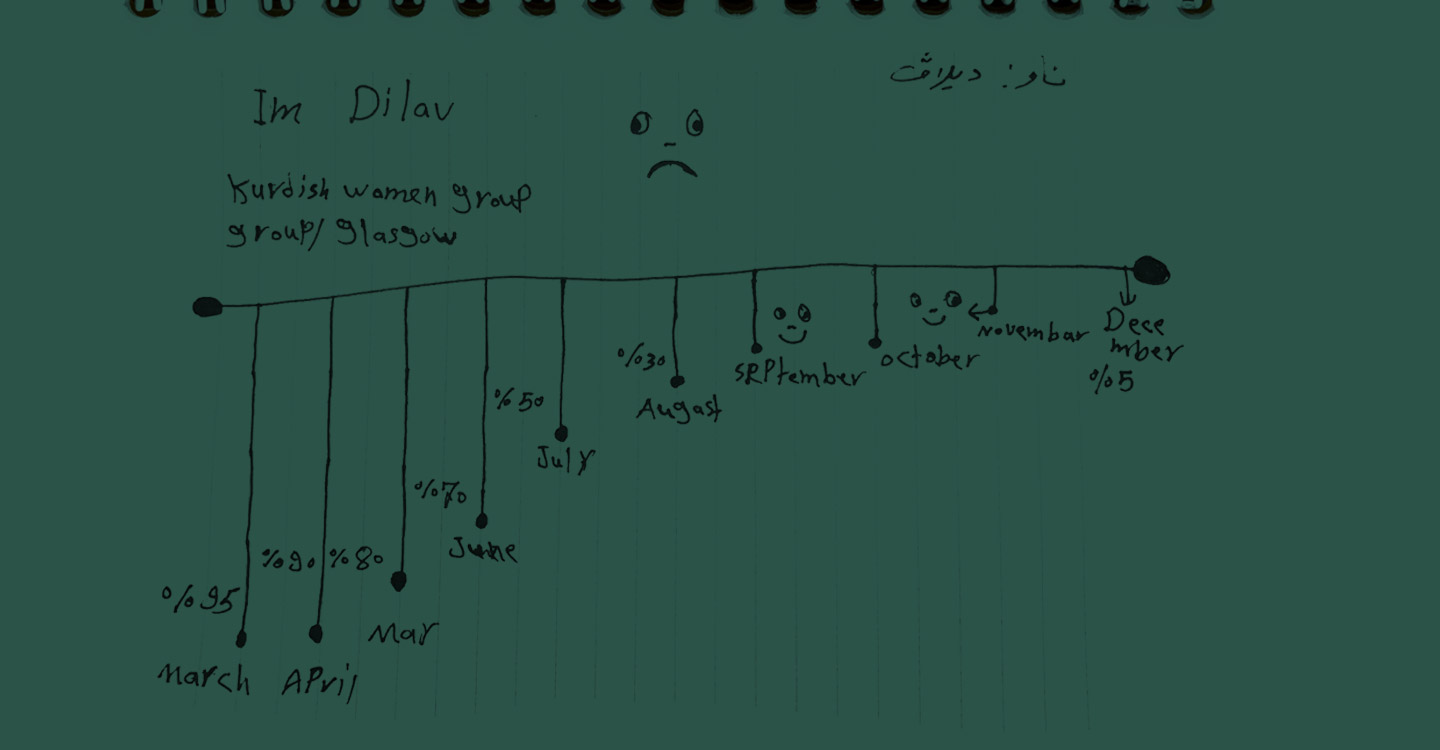 ناو: دیلاڤ
Im Dilav
Kurdish women group
group/ Glasgow
%95
March
%90
April
%80
May
%70
June
%50
July
%30
Augast
September
october
Novembar
Dece
mber
%5